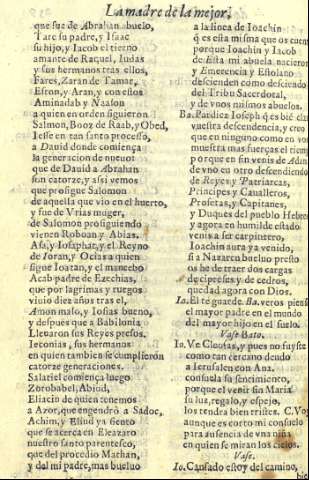 La madre de la mejor,
que fue de Abrahan abuelo,
Tare su padre, y Isaac
su hijo, y Iacob el tierno
amante de Raquel, Iudas
y sus hermanos tras ellos,
Fares, Zaran de Tamar,
Esron, y Aran, y con estos
Aminadab y Naason
a quien en orden siguieron
Salmon, Booz de Raab, y Obed,
Iesse en tan santo processo,
a Dauid donde comiença
la generacion de nueuo:
que de Dauid a Abrahan
son catorze, y assi vemos
que prosigue Salomon
de aquella que vio en el huerto,
y fue de Vrias muger,
de Salomon prosiguiendo
vienen Roboan y Abias.
Asa, y Iosaphat, y el Reyno
de Ioran, y Ocias a quien
sigue Ioatan, y el mancebo
Acab padre de Ezechias,
que por lagrimas y ruegos
viuio diez años tras el,
Amon malo, y Iosias bueno,
y despues que a Babilonia
Lleuaron sus Reyes presos.
Ieconias, sus hermanos
en quien tambien se cumplieron
catorze generaciones.
Salatiel comiença luego
Zorobabel, Abiud,
Eliacin de quien tenemos
a Azor, que engendrò a Sadoc,
Achim, y Eliud ya siento
que se acerca en Eleazaro
nuestro santo parentesco,
que del procedio Mathan,
y del mi padre, mas bueluo
a la linea de Ioachin
q̃ es esta misma que os cuento
porque Ioachin y Iacob
de Esta mi abuela nacieron
y Emerencia y Estolano
descienden como desciendo
del Tribu Sacerdotal,
y de vnos mismos abuelos.
Ba. Pardiez Ioseph q̃ es biẽ clara
vuestra descendencia, y creo
que en ninguno como en vos
muestra mas fuerças el tiempo
porque en fin venis de Adan
de vno en otro descendiendo
de Reyes, y Patriarcas,
Principes y Caualleros,
Profetas, y Capitanes,
y Duques del pueblo Hebreo
y agora en humilde estado
venis a ser carpintero,
Ioachin aura ya venido,
si a Nazaren bueluo presto
os he de traer dos cargas
de cipreses, y de cedros,
quedad agora con Dios.
Io. El te guarde. Ba. veros pienso
el mayor padre en el mundo
del mayor hijo en el suelo.
Vase Bato.
Io. Ve Cleofas, y pues no fuyste
como tan cercano deudo
a Ierusalen con Ana.
consuela su sentimiento,
porque el venir sin Maria
su luz, regalo, y espejo,
los tendra bien tristes. C. Voy
aunque es corto mi consuelo
para ausencia de vna niña
en quien se miran los cielos.
Vase.
Io. Cansado estoy del camino,